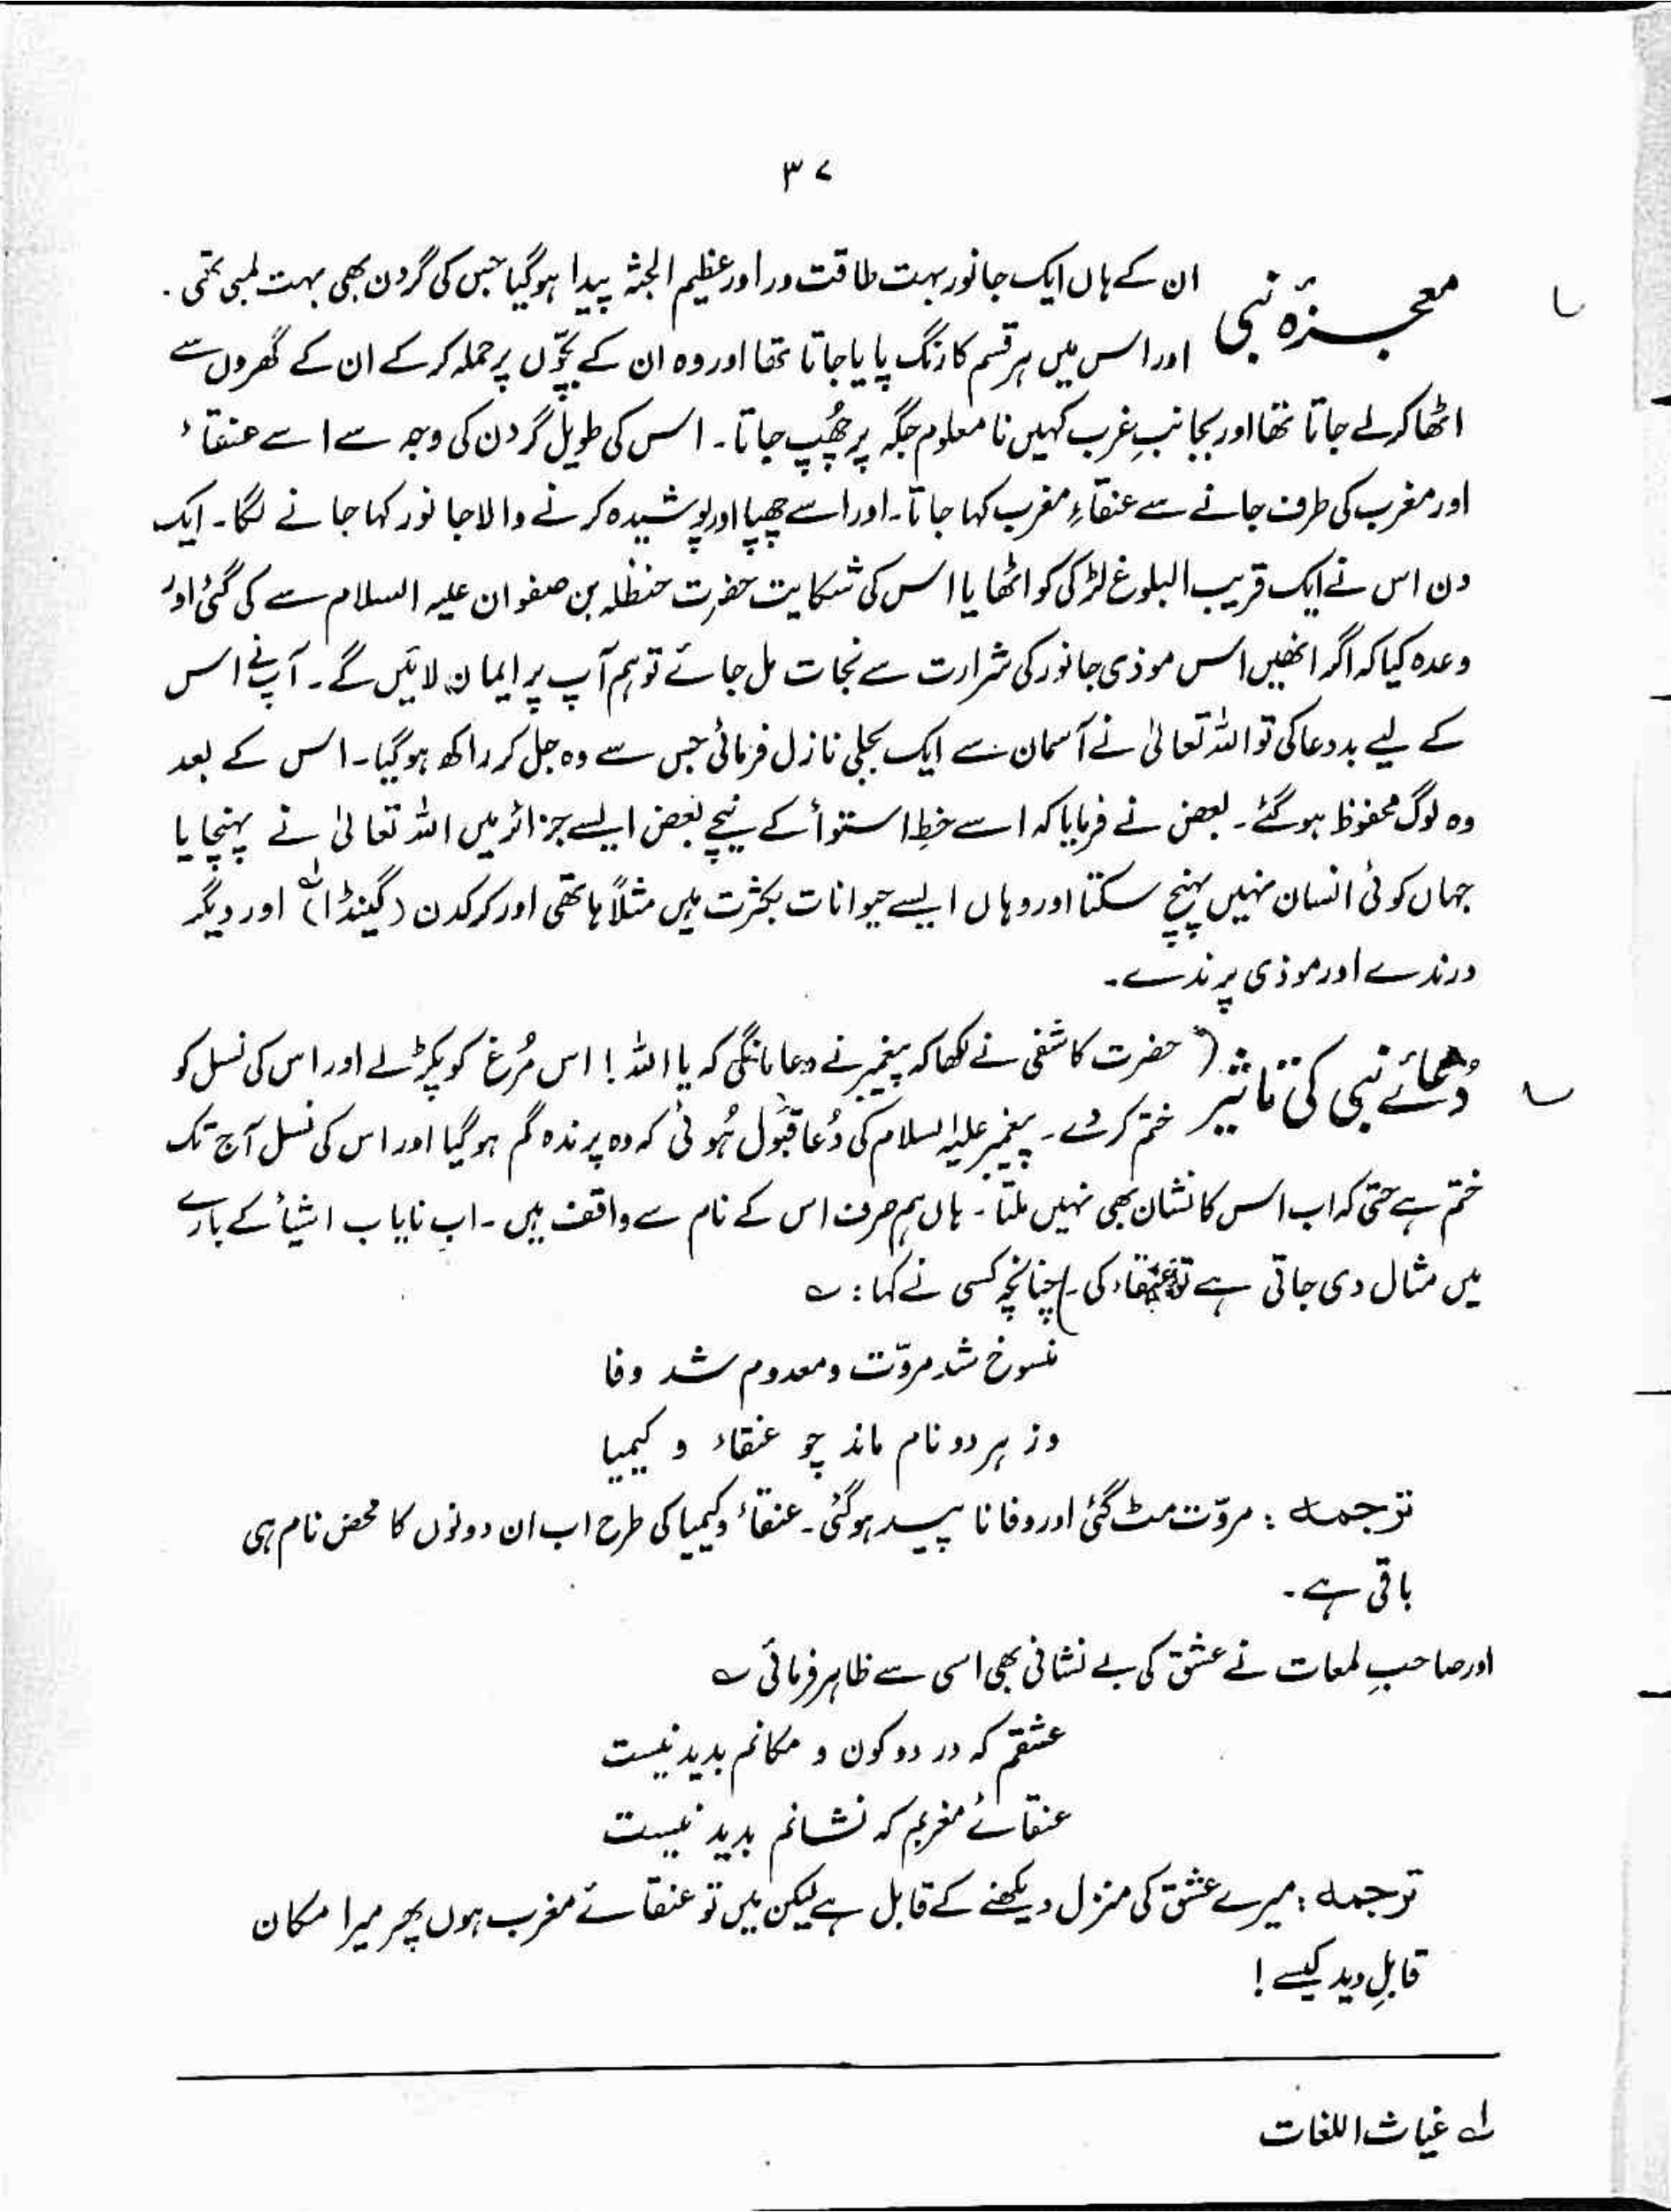 ۳۷
معجزۂ نبی ان کے ہاں ایک جانور بہت طاقت ور اور عظیم الجثہ پیدا ہوگیا جس کی گردن بھی بہت لمبی تھی۔
اور اس میں ہر قسم کا رنگ پایا جاتا تھا اور وہ ان کے بچّوں پر حملہ کرکے ان کے گھروں سے
اٹھا کر لے جاتا تھا اور بجانبِ غرب کہیں نامعلوم جگہ پر چھُپ جاتا۔ اس کی طویل گردن کی وجہ سے اسے عنقاء
اور مغرب کی طرف جانے سے عنقاءِ مغرب کہا جاتا۔ اور اسے چھپا اور پوشیدہ کرنے والا جانور کہا جانے لگا۔ ایک
دن اس نے ایک قریب البلوغ لڑکی کو اٹھایا اس کی شکایت حضرت حنظلہ بن صفوان علیہ السلام سے کی گئی اور
وعدہ کیا کہ اگر انھیں اس موذی جانور کی شرارت سے نجات مل جائے تو ہم آپ پر ایمان لائیں گے۔ آپ نے اس
کے لیے بددعا کی تو اللہ تعالیٰ نے آسمان سے ایک بجلی نازل فرمائی جس سے وہ جل کر راکھ ہوگیا۔ اس کے بعد
وہ لوگ محفوظ ہوگئے۔ بعض نے فرمایا کہ اسے خطِ استوأ کے نیچے بعض ایسے جزائر میں اللہ تعالیٰ نے پہنچایا
جہاں کوئی انسان نہیں پہنچ سکتا اور وہاں ایسے حیوانات بکثرت ہیں مثلاً ہاتھی اور کرکدن (گینڈا)۱؎ اور دیگر
درندے اور موذی پرندے۔
دُعائے نبی کی تاثیر ( حضرت کاشفی نے لکھا کہ پیغمبر نے دعا مانگی کہ یا اللہ! اس مُرغ کو پکڑ لے اور اس کی نسل کو
ختم کر دے۔ پیغمبر علیہ السلام کی دُعا قبول ہُوئی کہ وہ پرندہ گم ہوگیا اور اس کی نسل آج تک
ختم ہے حتی کہ اب اس کا نشان بھی نہیں ملتا۔ ہاں ہم صرف اس کے نام سے واقف ہیں۔ اب نایاب اشیأ کے بارے
میں مثال دی جاتی ہے تو عنقاء کی۔) چنانچہ کسی نے کہا: ؎
منسوخ شد مروّت و معدوم شد وفا
وز ہر دو نام ماند چو عنقاء و کیمیا
ترجمہ: مروّت مٹ گئی اور وفا ناپید ہوگئی۔ عنقاء و کیمیا کی طرح اب ان دونوں کا محض نام ہی
باقی ہے۔
اور صاحبِ لمعات نے عشق کی بے نشانی بھی اسی سے ظاہر فرمائی ؎
عشقم کہ در دو کون و مکانم بدید نیست
عنقائے مغربم کہ نشانم بدید نیست
ترجمہ: میرے عشق کی منزل دیکھنے کے قابل ہے لیکن میں تو عنقائے مغرب ہوں پھر میرا مکان
قابلِ دید کیسے!
۱؎ غیاث اللغات